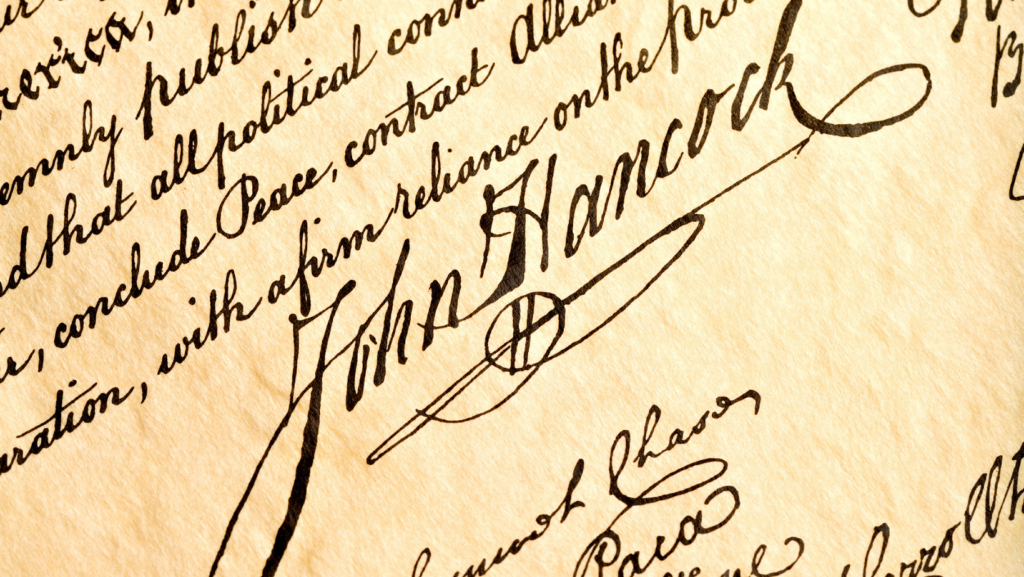 emnly publish
d that all political conn
, conclude Peace, contract Allian
aration, with a firm reliance on the pro
John Hancock
Chase
Paca